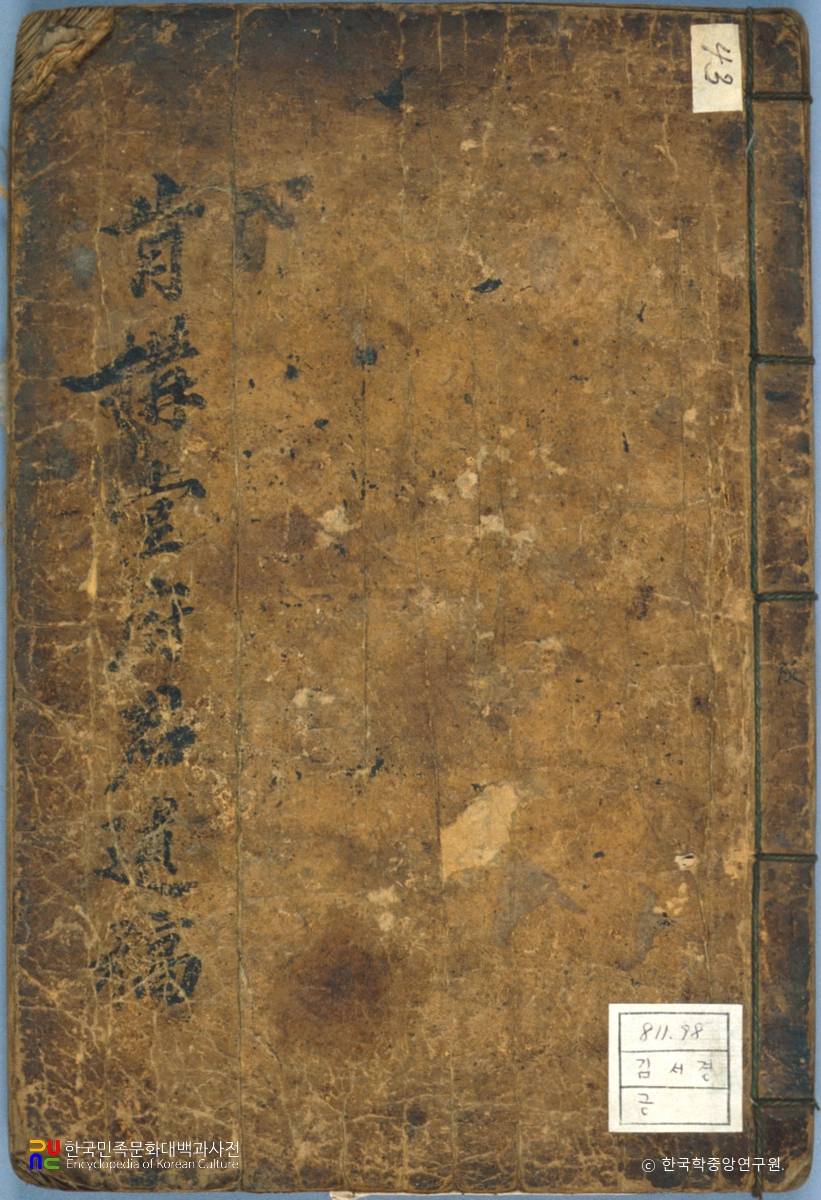 43
下
肯構堂府君遺稿
811.98
김서경
긍
한국민족문화대백과사전
Encyclopedia of Korean Culture
© 한국학중앙연구원.